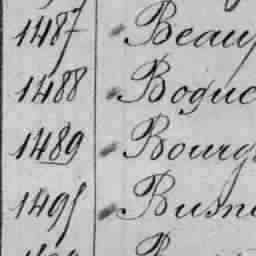 1487 Beau
1488 Bogue
1489 Bourg
1495 Bum